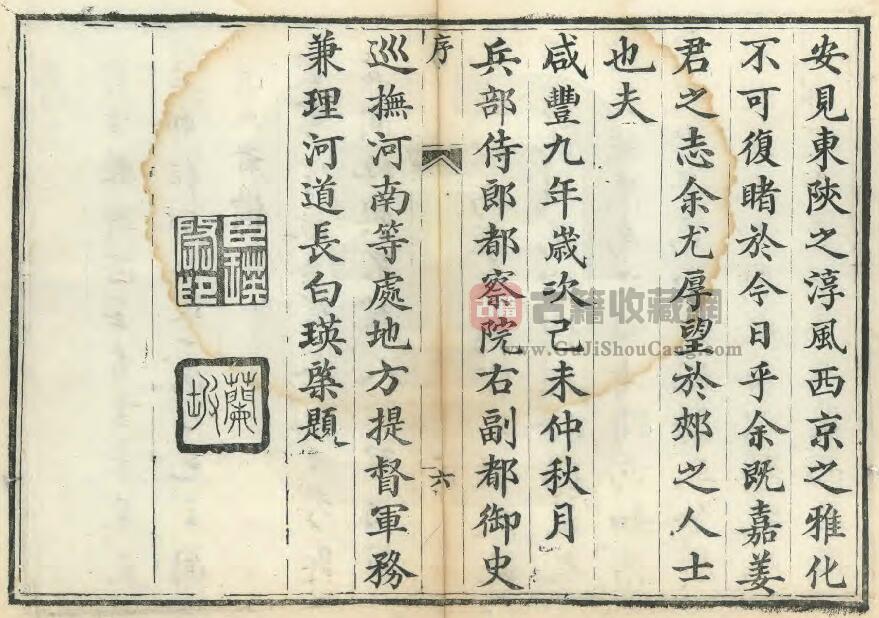 安見東陝之淳風西京之雅化
不可復睹於今日乎余既嘉姜
君之志余尤厚望於郟之人士
也夫
咸豐九年歲次己未仲秋月
兵部侍郎都察院右副都御史
序
六
巡撫河南等處地方提督軍務
兼理河道長白瑛棨題
臣瑛
棨印
蘭坡
古籍
古籍收藏网
www.GuJiShouCang.com